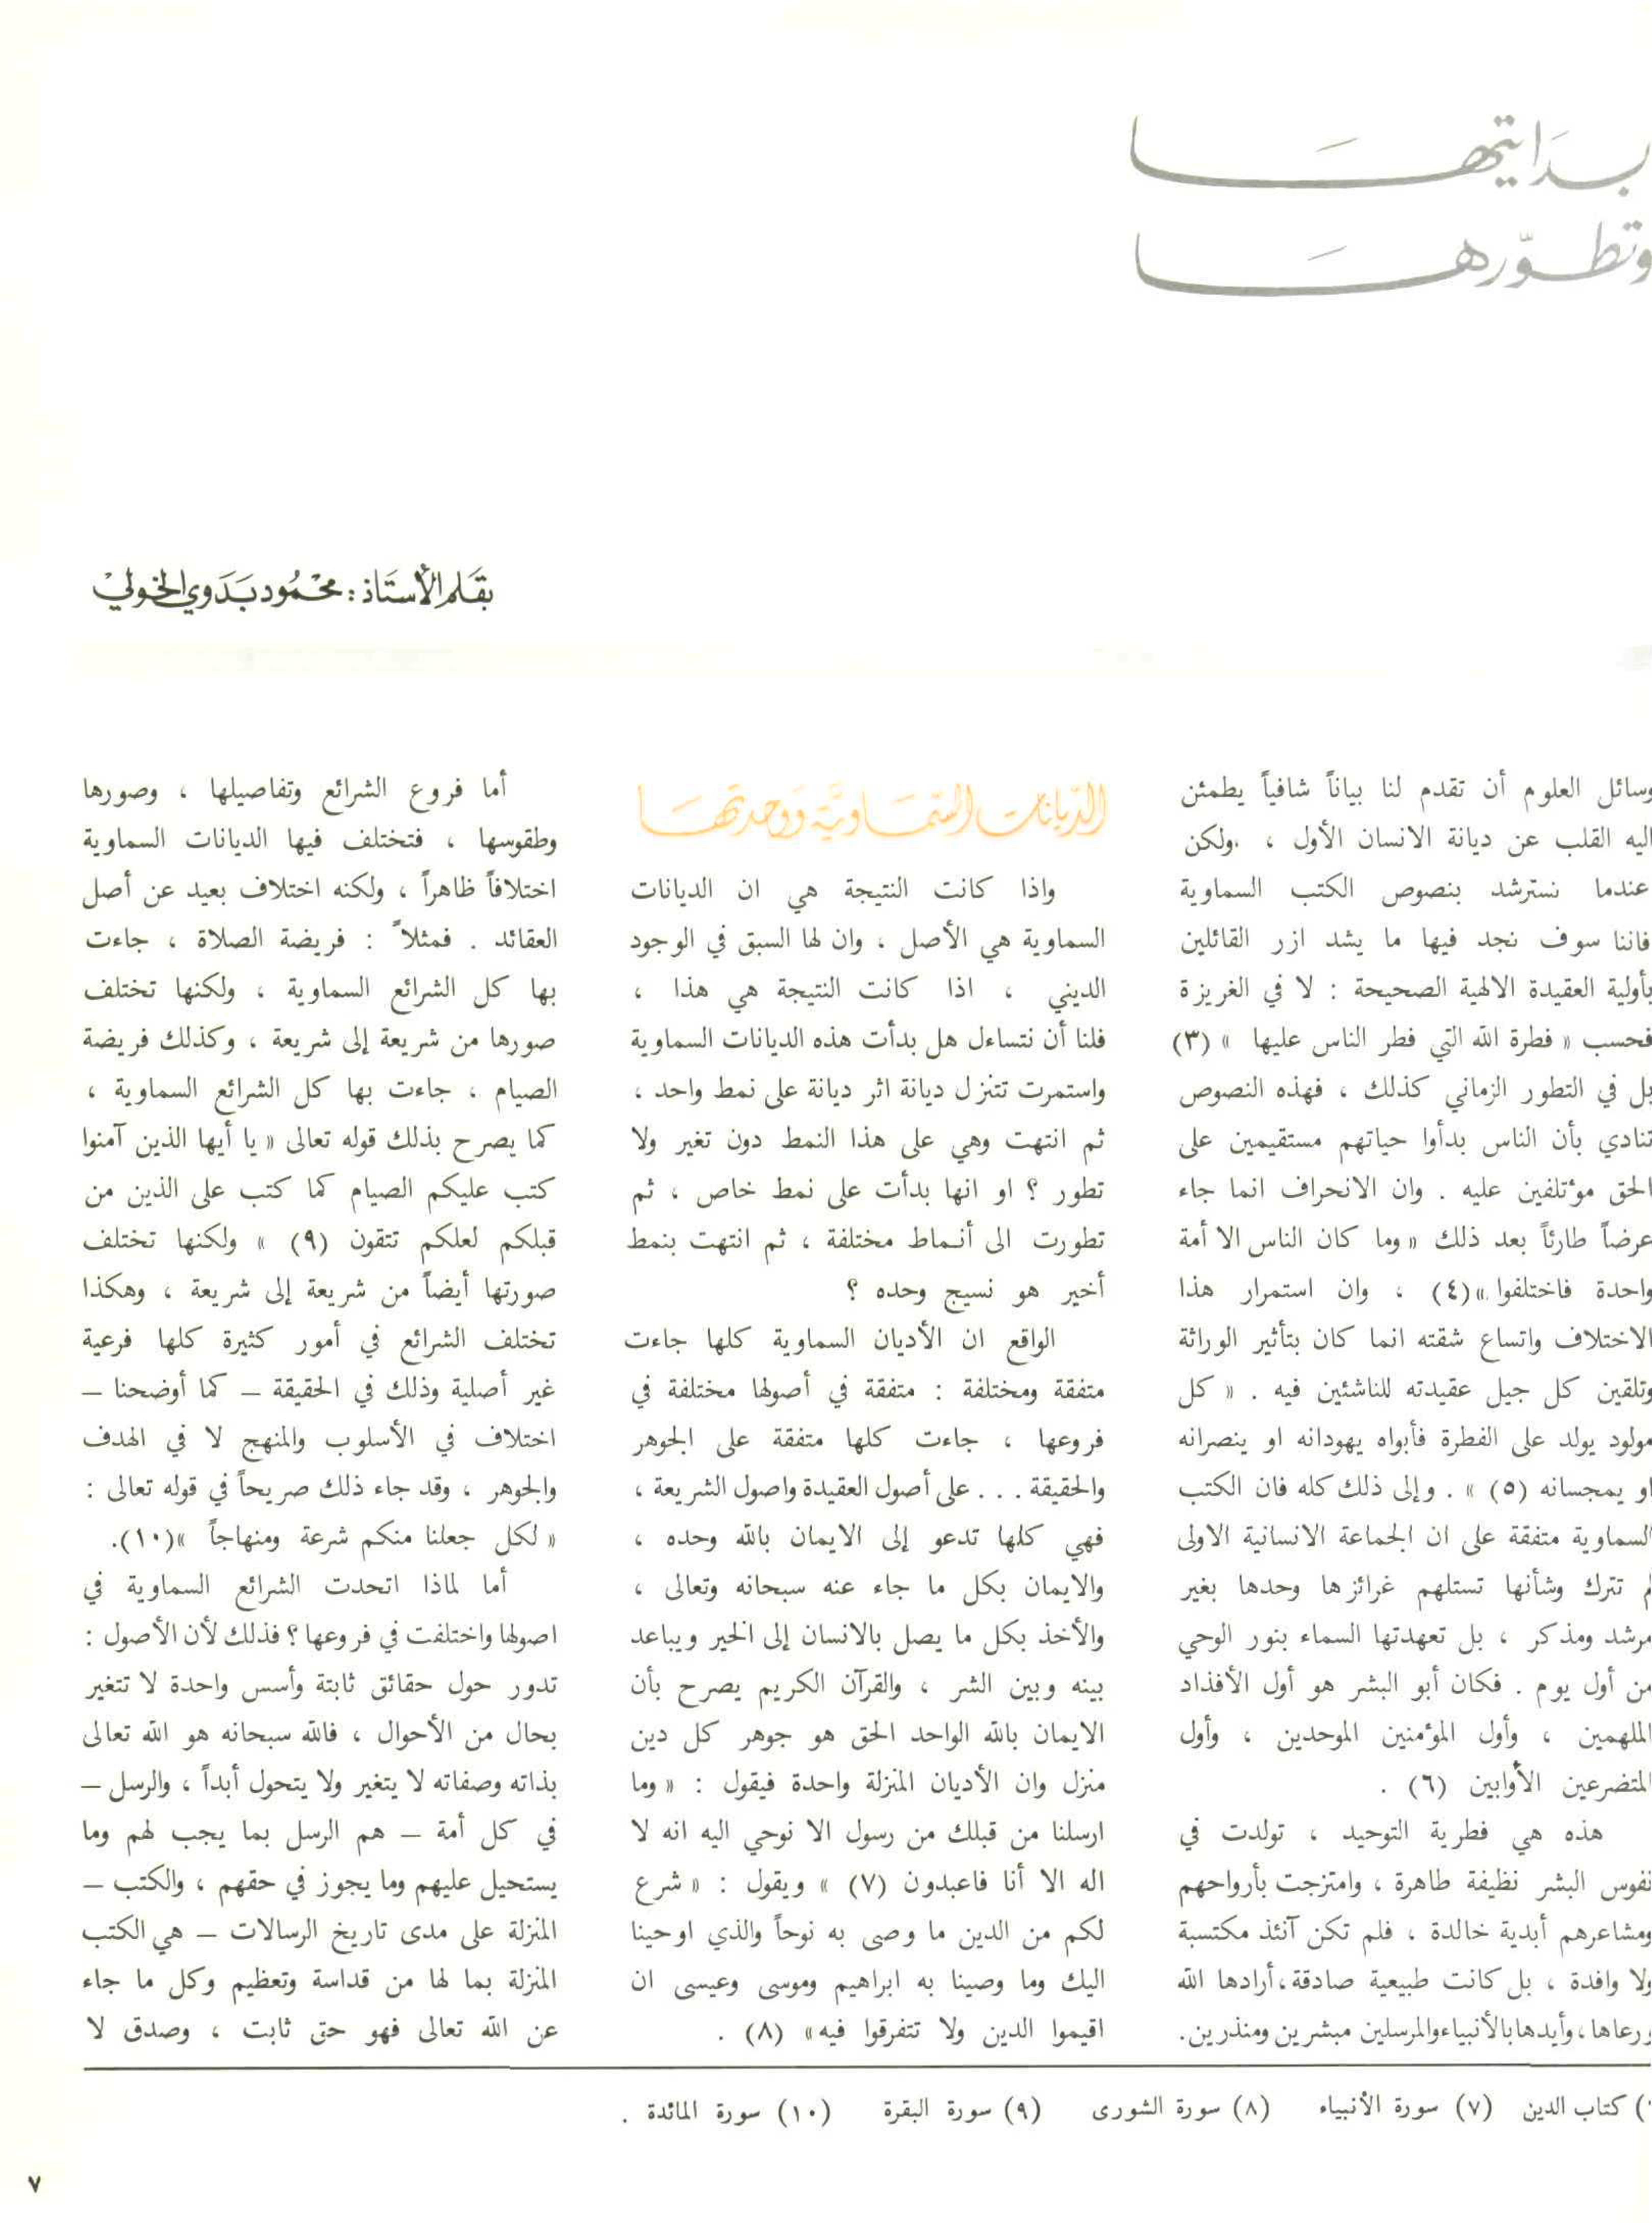 بدايتها
وتطوّرها
بقلم الأستاذ : محمود بدوي الخولي
وسائل العلوم أن تقدم لنا بياناً شافياً يطمئن
اليه القلب عن ديانة الانسان الأول ، ولكن
عندما نسترشد بنصوص الكتب السماوية
فاننا سوف نجد فيها ما يشد ازر القائلين
بأولية العقيدة الالهية الصحيحة : لا في الغريزة
فحسب « فطرة الله التي فطر الناس عليها » (٣)
بل في التطور الزماني كذلك ، فهذه النصوص
تنادي بأن الناس بدأوا حياتهم مستقيمين على
الحق موٴتلفين عليه . وان الانحراف انما جاء
عرضاً طارئاً بعد ذلك « وما كان الناس الا أمة
واحدة فاختلفوا »(٤) ، وان استمرار هذا
الاختلاف واتساع شقته انما كان بتأثير الوراثة
وتلقين كل جيل عقيدته للناشئين فيه . « كل
مولود يولد على الفطرة فأبواه يهودانه او ينصرانه
او يمجسانه (٥) » . وإلى ذلك كله فان الكتب
السماوية متفقة على ان الجماعة الانسانية الاولى
لم تترك وشأنها تستلهم غرائزها وحدها بغير
مرشد ومذكر ، بل تعهدتها السماء بنور الوحي
من أول يوم . فكان أبو البشر هو أول الأفذاد
الملهمين ، وأول الموٴمنين الموحدين ، وأول
المتضرعين الأوابين (٦) .
هذه هي فطرية التوحيد ، تولدت في
نفوس البشر نظيفة طاهرة ، وامتزجت بأرواحهم
ومشاعرهم أبدية خالدة ، فلم تكن آنئذ مكتسبة
ولا وافدة ، بل كانت طبيعية صادقة، أرادها الله
ورعاها ، وأيدها بالأنبياء والمرسلين مبشرين ومنذرين.
الدّيانات السّماويّة ووحدتها
واذا كانت النتيجة هي ان الديانات
السماوية هي الأصل ، وان لها السبق في الوجود
الديني ، اذا كانت النتيجة هي هذا ،
فلنا أن نتساءل هل بدأت هذه الديانات السماوية
واستمرت تتنزل ديانة اثر ديانة على نمط واحد ،
ثم انتهت وهي على هذا النمط دون تغير ولا
تطور ؟ او انها بدأت على نمط خاص ، ثم
تطورت الى أنماط مختلفة ، ثم انتهت بنمط
أخير هو نسيج وحده ؟
الواقع ان الأديان السماوية كلها جاءت
متفقة ومختلفة : متفقة في أصولها مختلفة في
فروعها ، جاءت كلها متفقة على الجوهر
والحقيقة . . . على أصول العقيدة واصول الشريعة ،
فهي كلها تدعو إلى الايمان بالله وحده ،
والايمان بكل ما جاء عنه سبحانه وتعالى ،
والأخذ بكل ما يصل بالانسان إلى الخير ويباعد
بينه وبين الشر ، والقرآن الكريم يصرح بأن
الايمان بالله الواحد الحق هو جوهر كل دين
منزل وان الأديان المنزلة واحدة فيقول : « وما
ارسلنا من قبلك من رسول الا نوحي اليه انه لا
اله الا أنا فاعبدون (٧) » ويقول : « شرع
لكم من الدين ما وصى به نوحاً والذي اوحينا
اليك وما وصينا به ابراهيم وموسى وعيسى ان
اقيموا الدين ولا تتفرقوا فيه» (٨) .
أما فروع الشرائع وتفاصيلها ، وصورها
وطقوسها ، فتختلف فيها الديانات السماوية
اختلافاً ظاهراً ، ولكنه اختلاف بعيد عن أصل
العقائد . فمثلاً : فريضة الصلاة ، جاءت
بها كل الشرائع السماوية ، ولكنها تختلف
صورها من شريعة إلى شريعة ، وكذلك فريضة
الصيام ، جاءت بها كل الشرائع السماوية ،
كما يصرح بذلك قوله تعالى « يا أيها الذين آمنوا
كتب عليكم الصيام كما كتب على الذين من
قبلكم لعلكم تتقون (٩) » ولكنها تختلف
صورتها أيضاً من شريعة إلى شريعة ، وهكذا
تختلف الشرائع في أمور كثيرة كلها فرعية
غير أصلية وذلك في الحقيقة – كما أوضحنا –
اختلاف في الأسلوب والمنهج لا في الهدف
والجوهر ، وقد جاء ذلك صريحاً في قوله تعالى :
« لكل جعلنا منكم شرعة ومنهاجاً »(١٠).
أما لماذا اتحدت الشرائع السماوية في
اصولها واختلفت في فروعها ؟ فذلك لأن الأصول :
تدور حول حقائق ثابتة وأسس واحدة لا تتغير
بحال من الأحوال ، فالله سبحانه هو الله تعالى
بذاته وصفاته لا يتغير ولا يتحول أبداً ، والرسل –
في كل أمة – هم الرسل بما يجب لهم وما
يستحيل عليهم وما يجوز في حقهم ، والكتب –
المنزلة على مدى تاريخ الرسالات – هي الكتب
المنزلة بما لها من قداسة وتعظيم وكل ما جاء
عن الله تعالى فهو حق ثابت ، وصدق لا
) كتاب الدين (٧) سورة الأنبياء (٨) سورة الشورى (٩) سورة البقرة (١٠) سورة المائدة .
٧